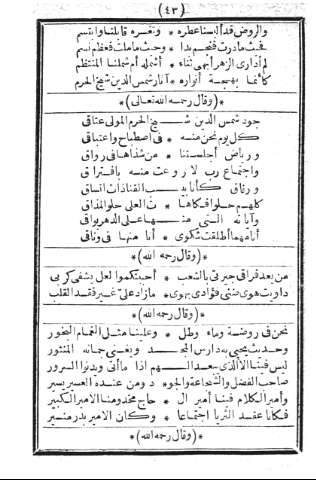 (٤٣)
والروض قد ألبسنا عطره * وثغره قابلنا وابتسم
فحيث مادرت فنجم بدا * وحيث ماملت فعظم نسم
لم أدر أى الزهر أبهى ثناء * أشمله أم شملنا المنتظم
كأنما بهجة أنواره * آثار شمس الدين شيخ الحرم
*(وقال رحمه الله تعالى)*
جود شمس الدين شيخ الحرم المولى عتاقى
كل يوم نحن منه * فى اصطباح واغتباق
ورياض أجلستنا * من شذاها فى رواق
واجتماع رب لا روعت منه بافتراق
ورفاق كأنابيب القنا ذات اتساق
كلهم حلو افكاها * ت العلى حلو المذاق
وآياته التى منها على الدهر بواقى
أنا مهما أطلقت شكوى * أنا منها فى وثاق
*(وقال رحمه الله)*
من بعد فراقى جيرتى بالشعب * أحببتكموا لعل يشفى كربى
داويت هوى ضنى فؤادى بهوى * مازاد على غير فقد القلب
*(وقال رحمه الله)*
نحن فى روضة وماء وظل * وعلينا مثل الغمام البخور
وحديث يحيى به دارس المجد ويغنى جمانه المنثور
ليس فينا الا الذى يعد اليهم اذا ما أتى ويدنو السرور
صاحب الفضل والشجاعة والجو * د ومن عنده العسير يسير
وأمير الكلام فينا أمير ال * حاج مخدومنا الامير الكبير
فكانا عقد الثريا اجتماعا * وكان الامير بدر منير
*(وقال رحمه الله)*